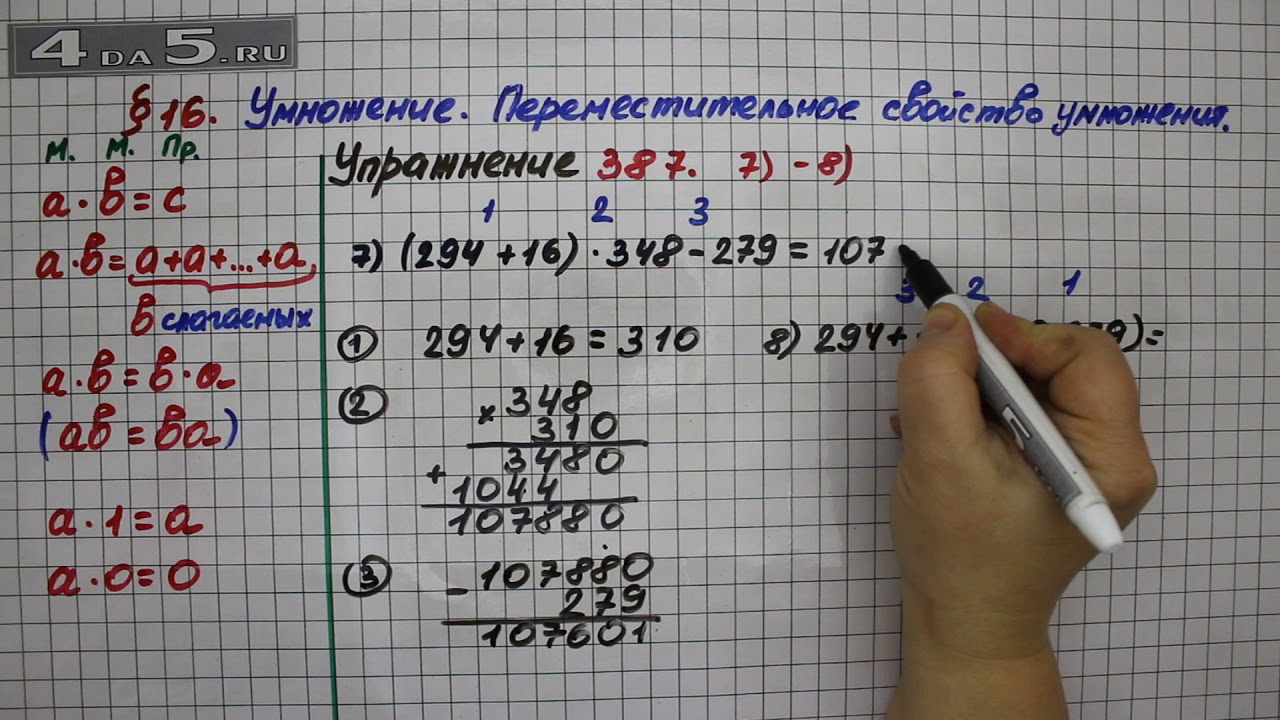 4DA5.RU
§ 16. Умножение. Переместительное свойство умножения.
М. М. Пр.
а · в = с
а · в = а + а + ... + а
в слагаемых
а · в = в · а
(ав = ва)
а · 1 = а
а · 0 = 0
Упражнение 387. 7) - 8)
1 2 3
7) (294 + 16) · 348 - 279 = 107
① 294 + 16 = 310
②
× 348
310
3480
+ 1044
107880
③
107880
- 279
107601
3 2 1
8) 294 + 9) =